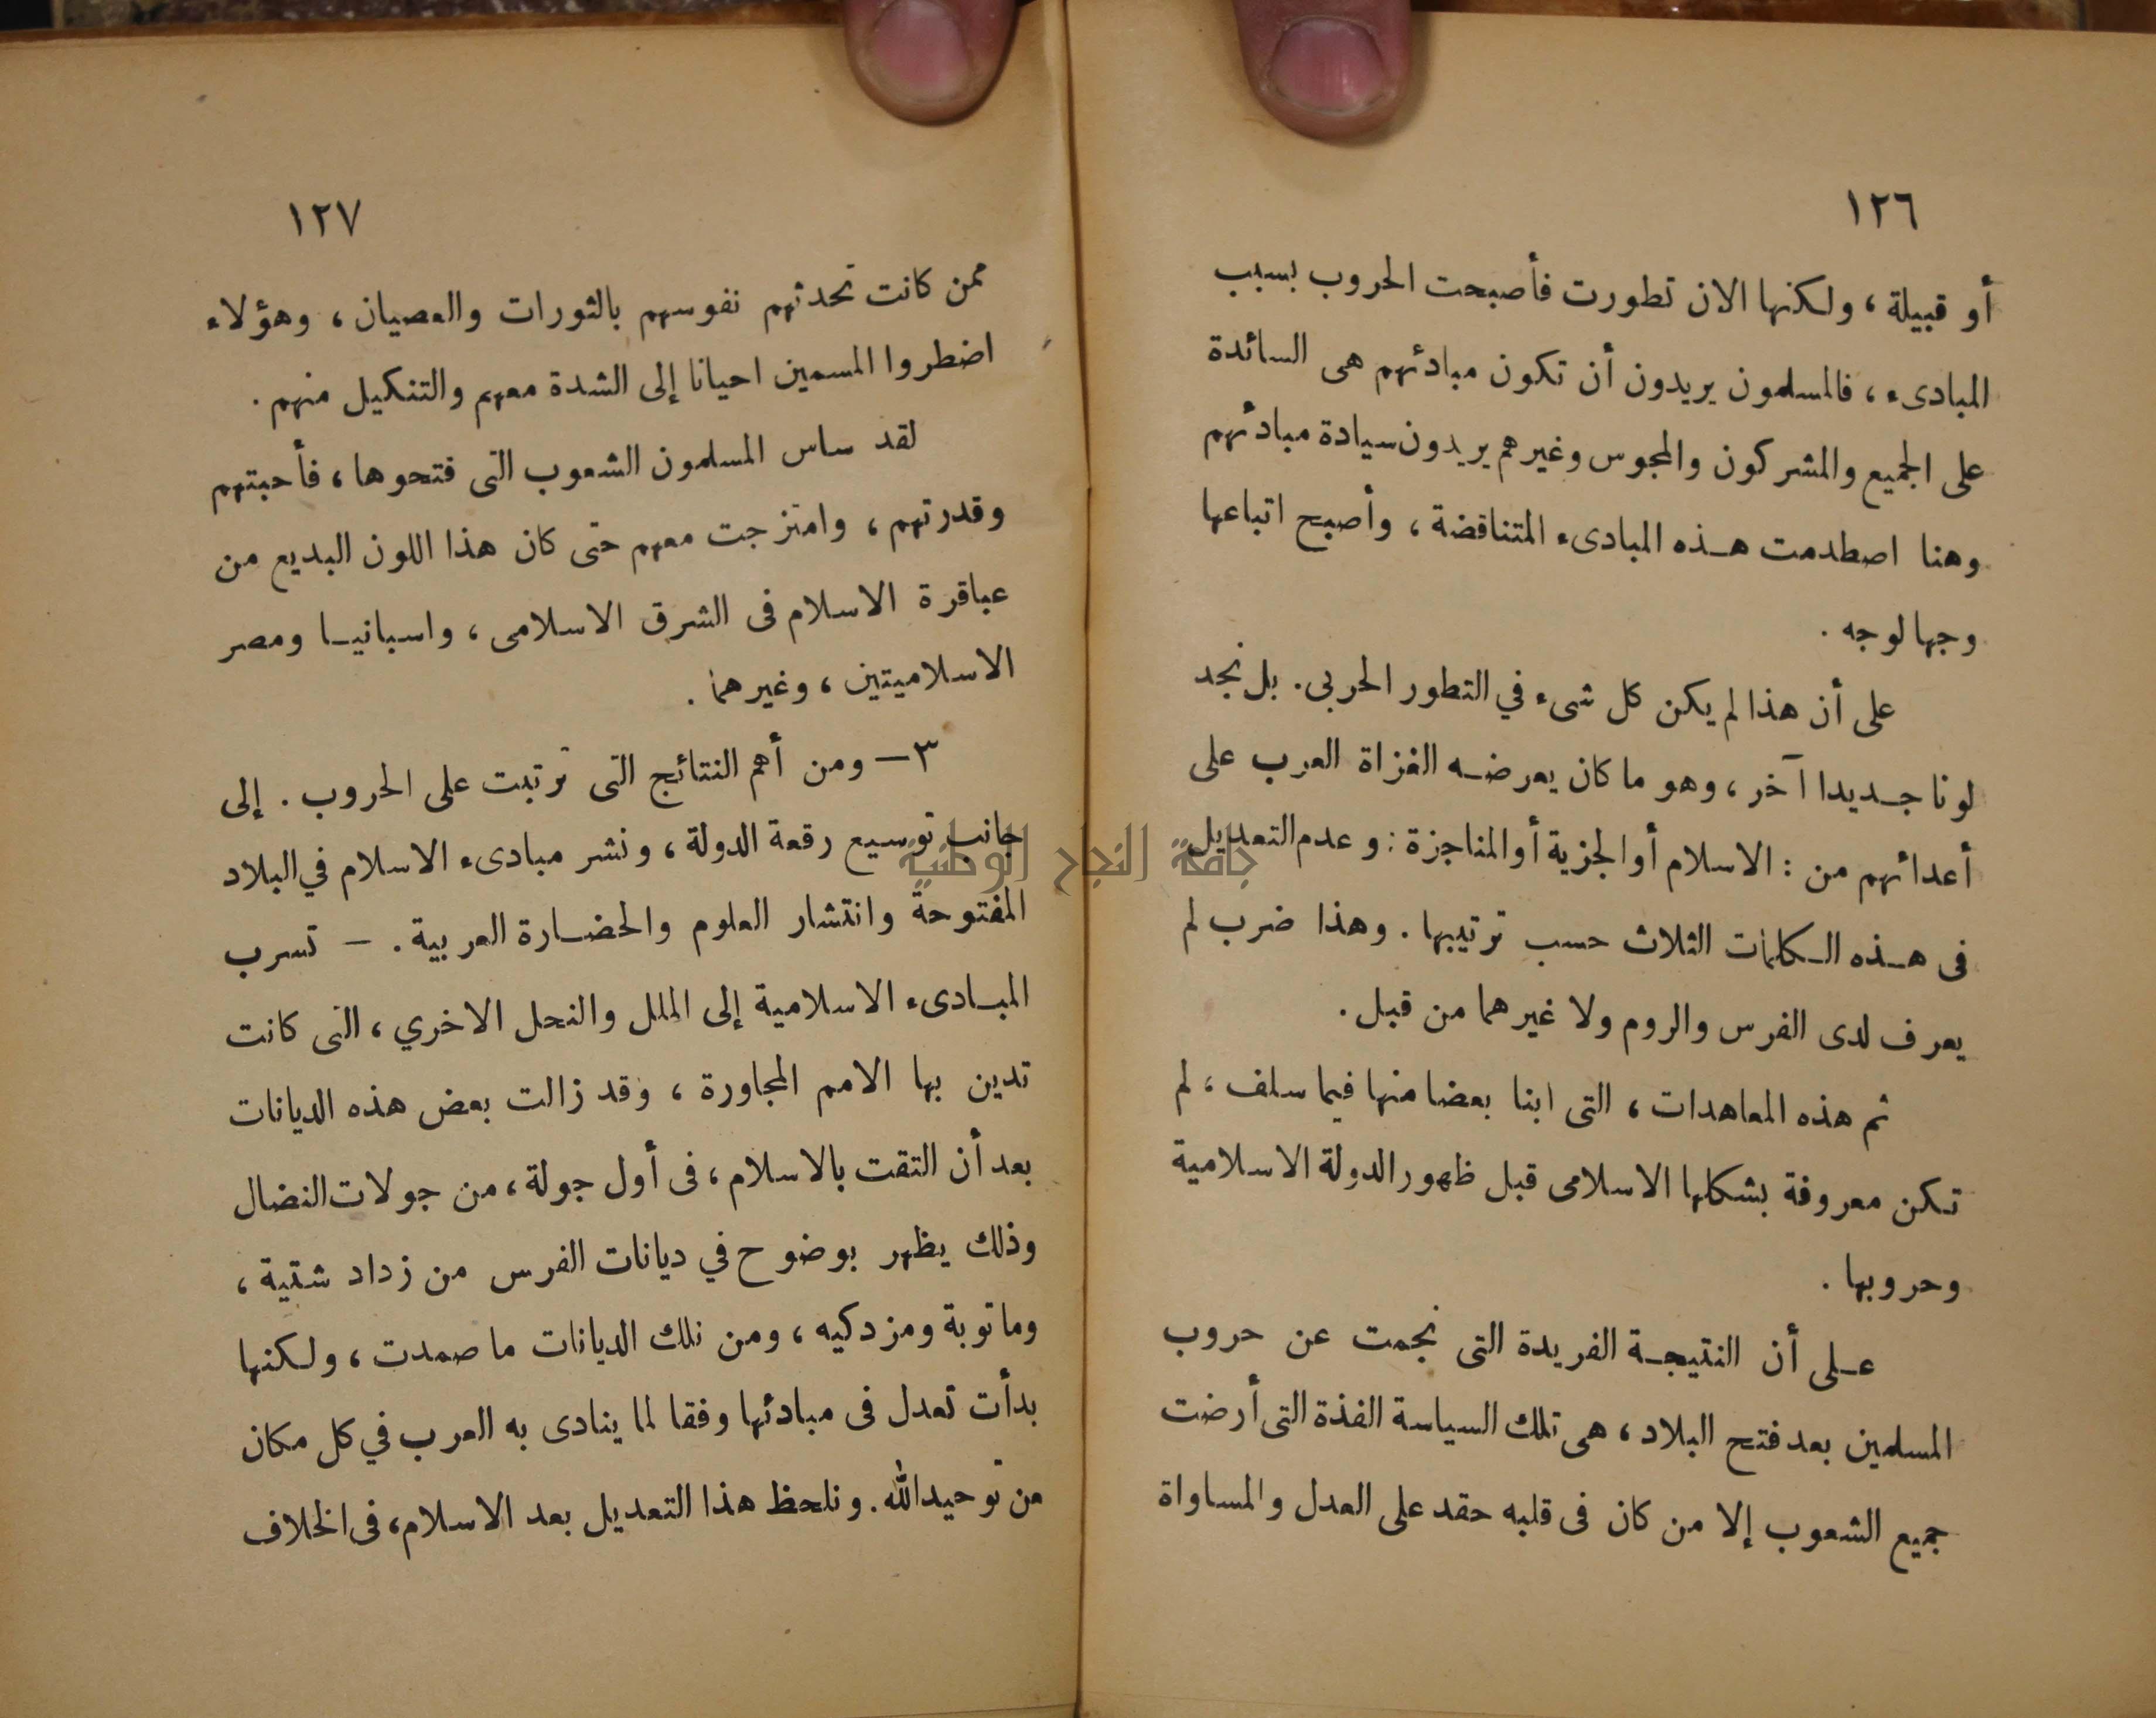 ١٢٦
أو قبيلة ، ولكنها الان تطورت فأصبحت الحروب بسبب
المبادىء ، فالمسلمون يريدون أن تكون مبادئهم هى السائدة
على الجميع والمشركون والمجوس وغيرهم يريدون سيادة مبادئهم
وهنا اصطدمت هذه المبادىء المتناقضة ، وأصبح اتباعها
وجها لوجه .
على أن هذا لم يكن كل شىء في التطور الحربى . بل نجد
لونا جديدا آخر ، وهو ما كان يعرضه الغزاة العرب على
أعدائهم من : الاسلام أو الجزية أو المناجزة : وعدم التعديل
فى هذه الكلمات الثلاث حسب ترتيبها . وهذا ضرب لم
يعرف لدى الفرس والروم ولا غيرهما من قبل .
ثم هذه المعاهدات ، التى ابنا بعضا منها فيما سلف ، لم
تكن معروفة بشكلها الاسلامى قبل ظهور الدولة الاسلامية
وحروبها .
على أن النتيجة الفريدة التى نجمت عن حروب
المسلمين بعد فتح البلاد ، هى تلك السياسة الفذة التى أرضت
جميع الشعوب إلا من كان فى قلبه حقد على العدل والمساواة
١٢٧
ممن كانت تحدثهم نفوسهم بالثورات والعصيان ، وهؤلاء
اضطروا المسمين احيانا إلى الشدة معهم والتنكيل منهم .
لقد ساس المسلمون الشعوب التى فتحوها ، فأحبتهم
وقدرتهم ، وامتزجت معهم حتى كان هذا اللون البديع من
عباقرة الاسلام فى الشرق الاسلامى ، واسبانيا ومصر
الاسلاميتين ، وغيرهما .
٣ — ومن أهم النتائج التى ترتبت على الحروب . إلى
جانب توسيع رقعة الدولة ، ونشر مبادىء الاسلام في البلاد
المفتوحة وانتشار العلوم والحضارة العربية . — تسرب
المبادىء الاسلامية إلى الملل والنحل الاخري ، التى كانت
تدين بها الامم المجاورة ، وقد زالت بعض هذه الديانات
بعد أن التقت بالاسلام ، فى أول جولة ، من جولات النضال
وذلك يظهر بوضوح في ديانات الفرس من زداد شتية ،
وماتوبة ومزدكيه ، ومن تلك الديانات ما صمدت ، ولكنها
بدأت تعدل فى مبادئها وفقا لما ينادى به العرب في كل مكان
من توحيد الله . ونلحظ هذا التعديل بعد الاسلام ، فى الخلاف
جامعة النجاح الوطنية